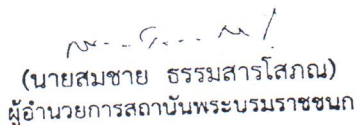 (นายสมชาย ธรรมสารโสภณ)
ผู้อำนวยการสถาบันพระบรมราชชนก